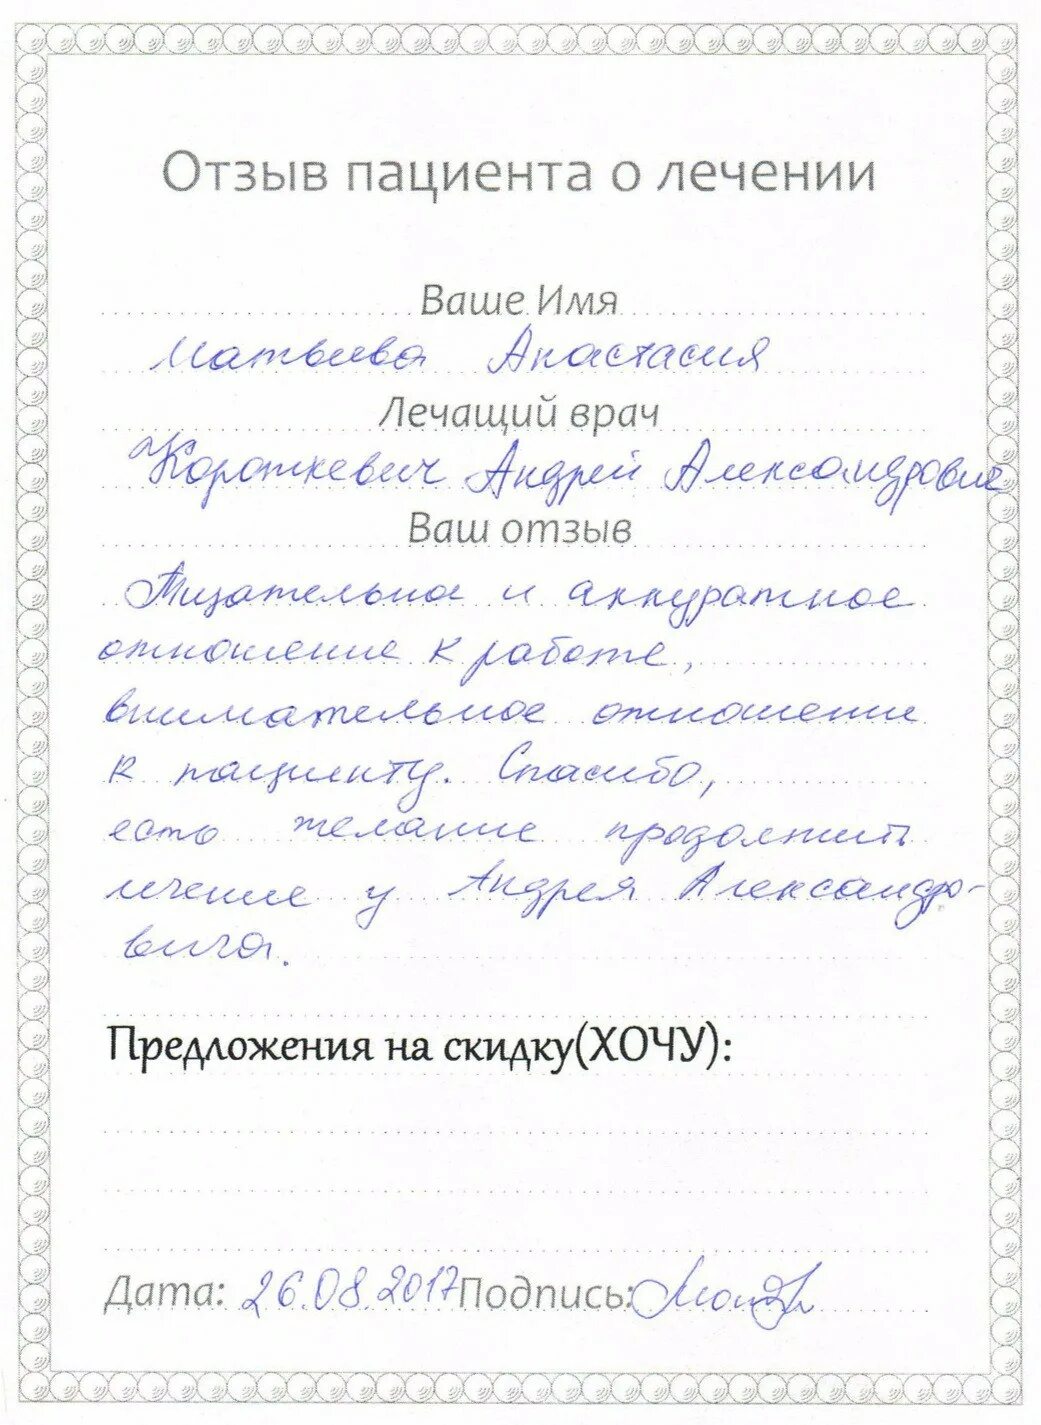 Отзыв пациента о лечении
Ваше Имя
Матвеева Анастасия
Лечащий врач
Короткевич Андрей Александрович
Ваш отзыв
Тщательное и аккуратное
отношение к работе,
внимательное отношение
к пациенту. Спасибо,
есть желание продолжить
лечение у Андрея Александро-
вича.
Предложения на скидку(ХОЧУ):
Дата: 26.08.2017 Подпись: